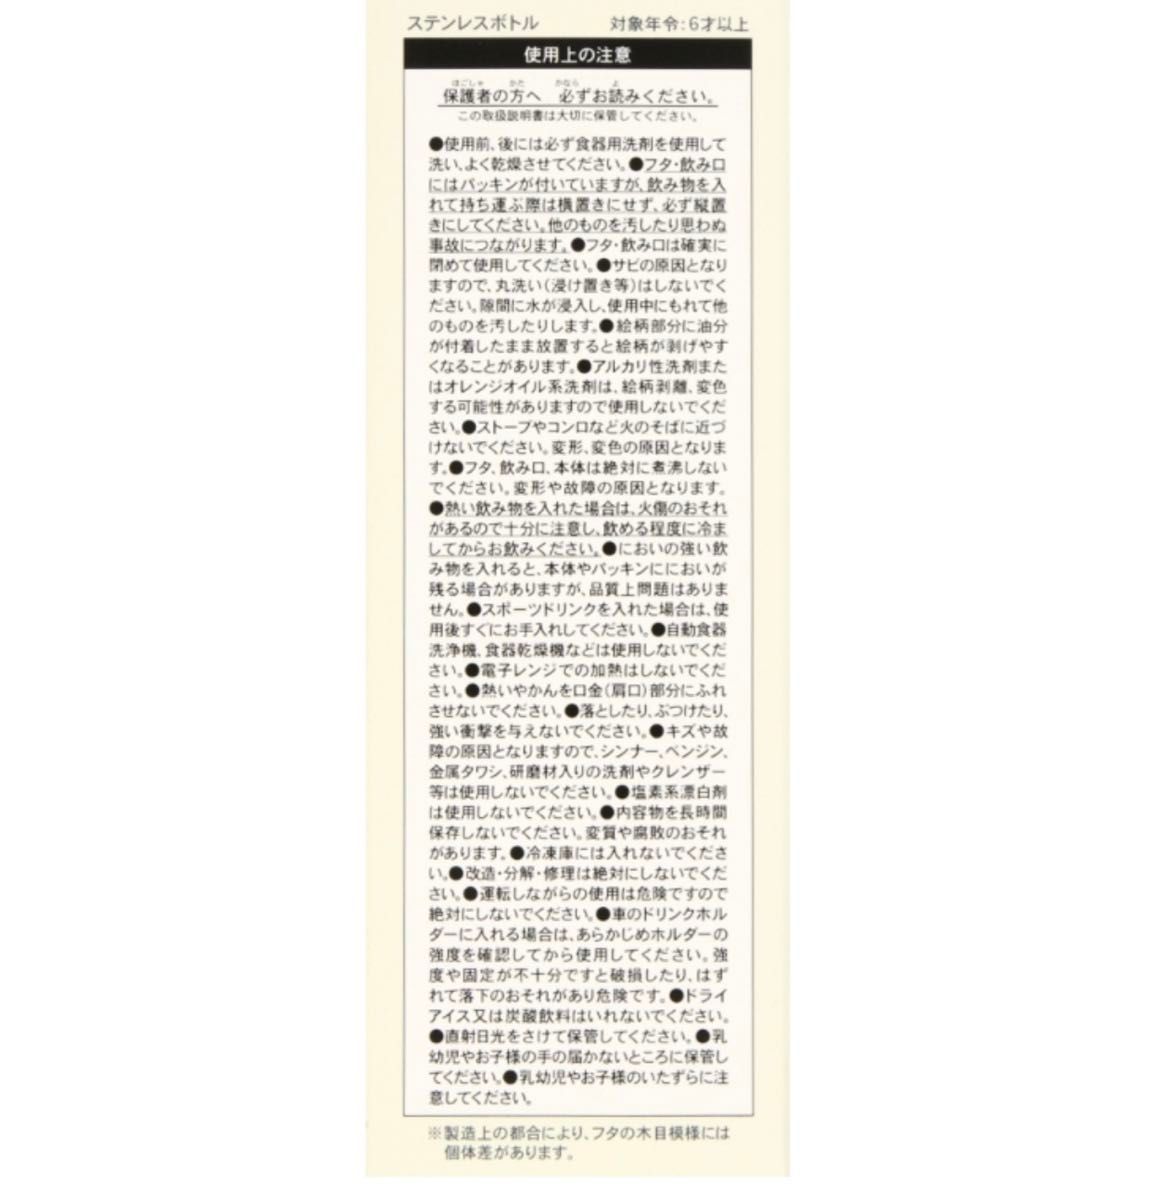 ステンレスボトル　対象年令：6才以上
使用上の注意
ほごしゃ　かた　かなら　よ
保護者の方へ　必ずお読みください。
この取扱説明書は大切に保管してください。
●使用前、後には必ず食器用洗剤を使用して
洗い、よく乾燥させてください。●フタ・飲み口
にはパッキンが付いていますが、飲み物を入
れて持ち運ぶ際は横置きにせず、必ず縦置
きにしてください。他のものを汚したり思わぬ
事故につながります。●フタ・飲み口は確実に
閉めて使用してください。●サビの原因となり
ますので、丸洗い（浸け置き等）はしないでく
ださい。隙間に水が浸入し、使用中にもれて他
のものを汚したりします。●絵柄部分に油分
が付着したまま放置すると絵柄が剥げやす
くなることがあります。●アルカリ性洗剤また
はオレンジオイル系洗剤は、絵柄剥離、変色
する可能性がありますので使用しないでくだ
さい。●ストーブやコンロなど火のそばに近づ
けないでください。変形、変色の原因となりま
す。●フタ、飲み口、本体は絶対に煮沸しない
でください。変形や故障の原因となります。
●熱い飲み物を入れた場合は、火傷のおそれ
があるので十分に注意し、飲める程度に冷ま
してからお飲みください。●においの強い飲
み物を入れると、本体やパッキンににおいが
残る場合がありますが、品質上問題はありま
せん。●スポーツドリンクを入れた場合は、使
用後すぐにお手入れしてください。●自動食器
洗浄機、食器乾燥機などは使用しないでくだ
さい。●電子レンジでの加熱はしないでくだ
さい。●熱いやかんを口金（肩口）部分にふれ
させないでください。●落としたり、ぶつけたり、
強い衝撃を与えないでください。●キズや故
障の原因となりますので、シンナー、ベンジン、
金属タワシ、研磨材入りの洗剤やクレンザー
等は使用しないでください。●塩素系漂白剤
は使用しないでください。●内容物を長時間
保存しないでください。変質や腐敗のおそれ
があります。●冷凍庫には入れないでくださ
い。●改造・分解・修理は絶対にしないでくだ
さい。●運転しながらの使用は危険ですので
絶対にしないでください。●車のドリンクホル
ダーに入れる場合は、あらかじめホルダーの
強度を確認してから使用してください。強
度や固定が不十分ですと破損したり、はず
れて落下のおそれがあり危険です。●ドライ
アイス又は炭酸飲料はいれないでください。
●直射日光をさけて保管してください。●乳
幼児やお子様の手の届かないところに保管し
てください。●乳幼児やお子様のいたずらに注
意してください。
※製造上の都合により、フタの木目模様には
個体差があります。